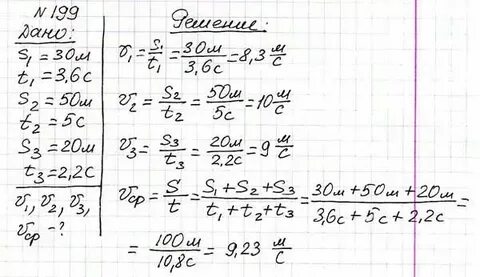 N 199
Дано:
S₁ = 30м
t₁ = 3,6с
S₂ = 50м
t₂ = 5с
S₃ = 20м
t₃ = 2,2с
v₁, v₂, v₃,
vср - ?
Решение:
v₁ = S₁/t₁ = 30м/3,6с = 8,3 м/с
v₂ = S₂/t₂ = 50м/5с = 10 м/с
v₃ = S₃/t₃ = 20м/2,2с = 9 м/с
vср = S/t = (S₁ + S₂ + S₃)/(t₁ + t₂ + t₃) = (30м + 50м + 20м)/(3,6с + 5с + 2,2с) =
= 100м/10,8с = 9,23 м/с